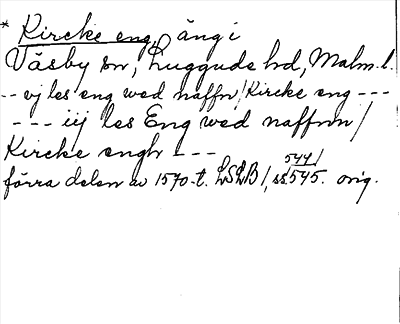 * Kircke eng, äng i
Väsby sn, Luggude hd, Malm. l.
-- vj les eng wed naffn / Kircke eng ---
--- iij les Eng wed naffnn /
Kircke engh ---
förra delen av 1570-t. LSLB /, ss 545. orig.
544 /